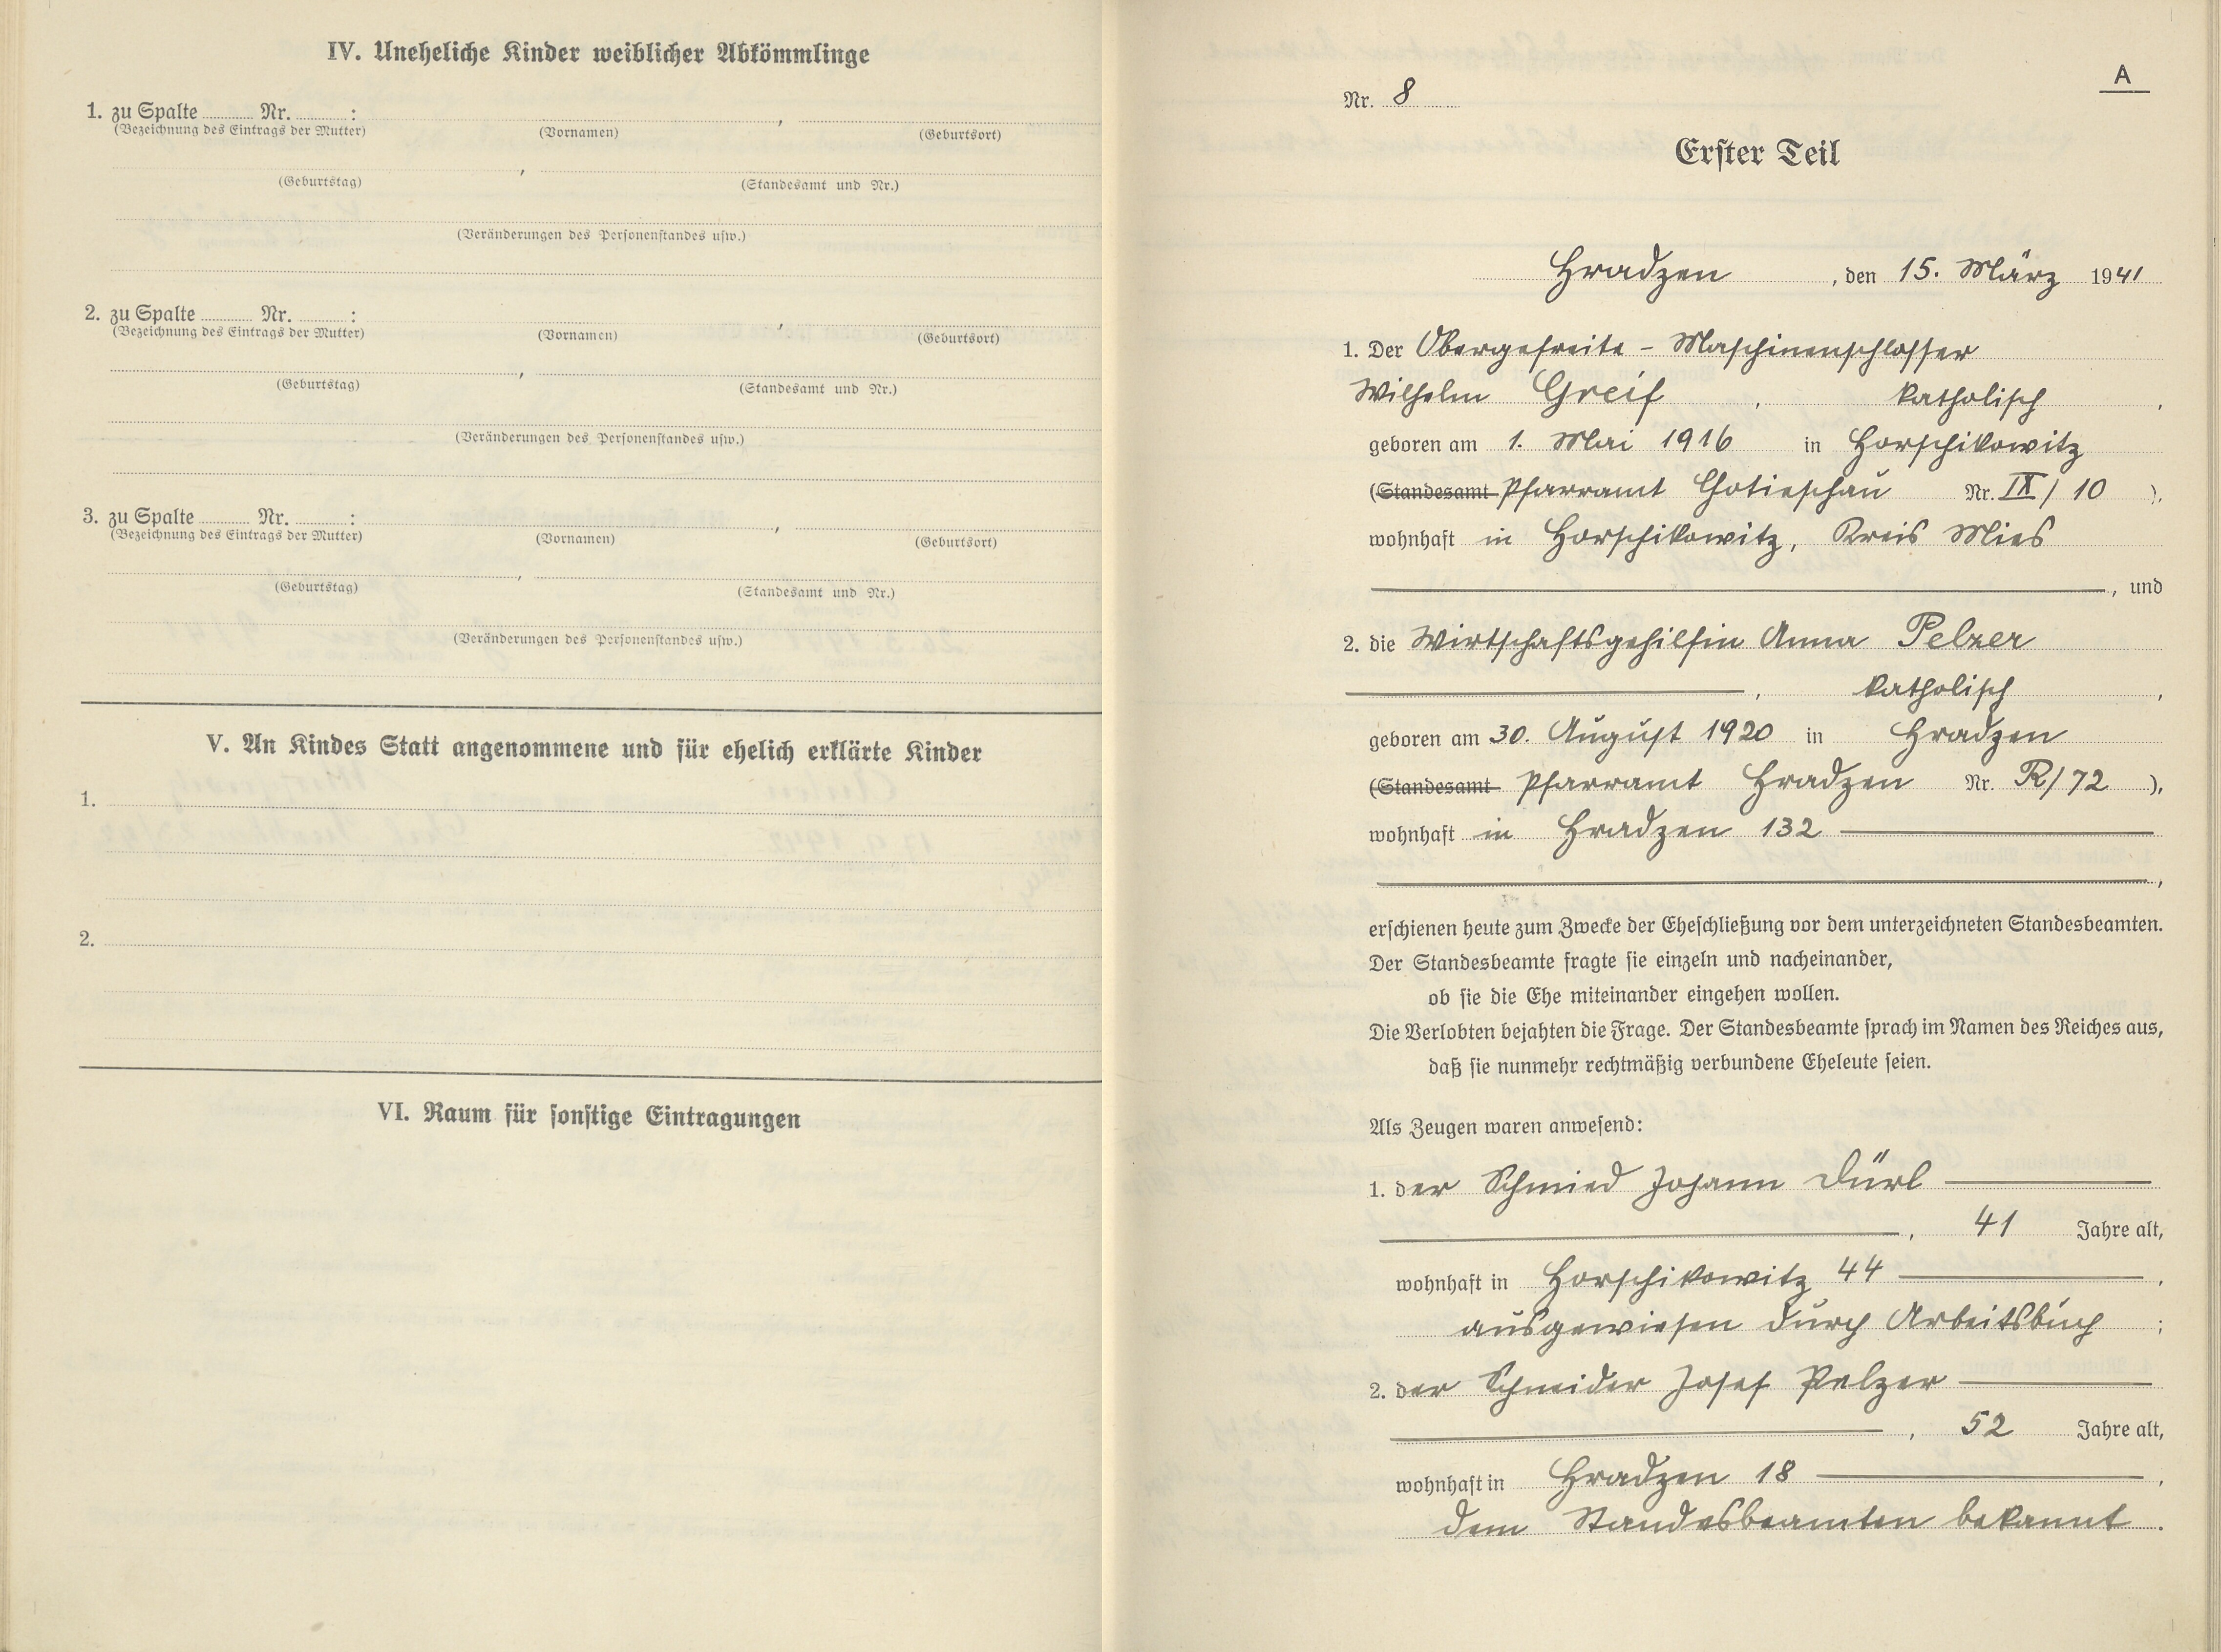 IV. Uneheliche Kinder weiblicher Abkömmlinge
1. zu Spalte ........ Nr. ........ :
(Bezeichnung des Eintrags der Mutter) (Vornamen) , (Geburtsort)
,
(Geburtstag) (Standesamt und Nr.)
(Veränderungen des Personenstandes usw.)
2. zu Spalte ........ Nr. ........ :
(Bezeichnung des Eintrags der Mutter) (Vornamen) , (Geburtsort)
,
(Geburtstag) (Standesamt und Nr.)
(Veränderungen des Personenstandes usw.)
3. zu Spalte ........ Nr. ........ :
(Bezeichnung des Eintrags der Mutter) (Vornamen) , (Geburtsort)
,
(Geburtstag) (Standesamt und Nr.)
(Veränderungen des Personenstandes usw.)
V. An Kindes Statt angenommene und für ehelich erklärte Kinder
1.
2.
VI. Raum für sonstige Eintragungen
A
Nr. 8
Erster Teil
Hradzen , den 15. März 1941
1. Der Obergefreite - Maschinenschlosser
Wilhelm Greif , katholisch ,
geboren am 1. Mai 1916 in Horschikowitz
(Standesamt Pfarramt Chotieschau Nr. IX/10 ),
wohnhaft in Horschikowitz, Kreis Mies
, und
2. die Wirtschaftsgehilfin Anna Pelzer
, katholisch ,
geboren am 30. August 1920 in Hradzen
(Standesamt Pfarramt Hradzen Nr. R/72 ),
wohnhaft in Hradzen 132
,
erschienen heute zum Zwecke der Eheschließung vor dem unterzeichneten Standesbeamten.
Der Standesbeamte fragte sie einzeln und nacheinander,
ob sie die Ehe miteinander eingehen wollen.
Die Verlobten bejahten die Frage. Der Standesbeamte sprach im Namen des Reiches aus,
daß sie nunmehr rechtmäßig verbundene Eheleute seien.
Als Zeugen waren anwesend:
1. der Schmied Johann Dürl
, 41 Jahre alt,
wohnhaft in Horschikowitz 44 ,
ausgewiesen durch Arbeitsbuch ;
2. der Schneider Josef Pelzer
, 52 Jahre alt,
wohnhaft in Hradzen 18 ,
dem Standesbeamten bekannt .